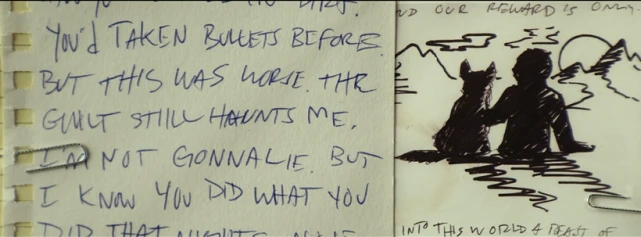 YOU'D TAKEN BULLETS BEFORE.
BUT THIS WAS WORSE. THE
GUILT STILL HAUNTS ME.
I'M NOT GONNA LIE. BUT
I KNOW YOU DID WHAT YOU
DID THAT
OUR REWARD IS ONLY
INTO THIS WORLD A BEAST OF